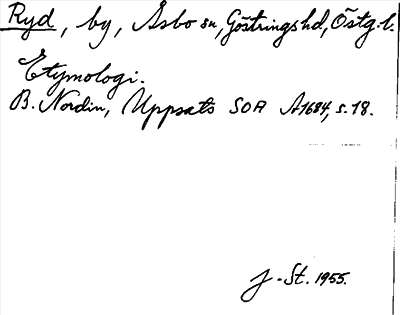 Ryd, by, Åsbo sn, Göstrings hd, Östg. l.
Etymologi.
B. Nordin, Uppsats SOA A1684, s. 18.
J-St. 1955.